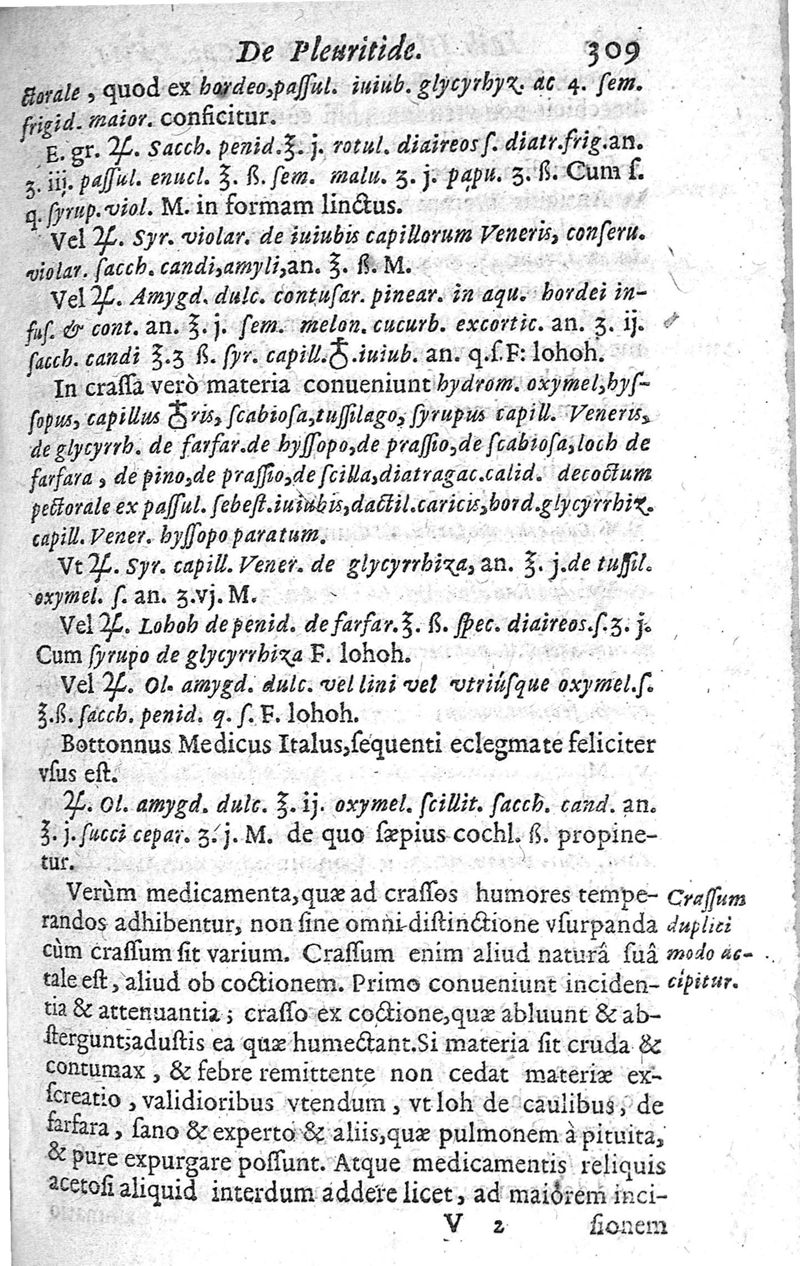 De Pleuritide. 309
ctorale, quod ex hordeo, paſſul. iuiub. glycyrhyz. ac 4. ſem.
frigid. maior. conficitur.
E. gr. ♃. Sacch. penid. ℥. j. rotul. diaireos ſ. diatr. frig. an.
ʒ. iij. paſſul. enucl. ℥. ß. ſem. malu. ʒ. j. papu. ʒ. ß. Cum ſ.
q. ſyrup. viol. M. in formam linctus.
Vel ♃. Syr. violar. de iuiubis capillorum Veneris, conſeru.
violar. ſacch. candi, amyli, an. ℥. ß. M.
Vel ♃. Amygd. dulc. contuſar. pinear. in aqu. hordei in-
fuſ. & cont. an. ℥. j. ſem. melon. cucurb. excortic. an. ʒ. ij.
ſacch. candi ℥.ʒ ß. ſyr. capill. ♁. iuiub. an. q. ſ. F: lohoh.
In craſſa verò materia conueniunt hydrom. oxymel, hyſ-
ſopus, capillus ♁ris, ſcabioſa, tuſſilago, ſyrupus capill. Veneris,
de glycyrrh. de farfar. de hyſſopo, de praſſio, de ſcabioſa, loch de
farfara, de pino, de praſſio, de ſcilla, diatragac. calid. decoctum
pectorale ex paſſul. ſebeſt. iuiubis, dactil. caricis, hord. glycyrrhiz.
capill. Vener. hyſſopo paratum.
Vt ♃. Syr. capill. Vener. de glycyrrhiza, an. ℥. j. de tuſſil.
oxymel. ſ. an. ʒ. vj. M.
Vel ♃. Lohoh de penid. de farfar. ℥. ß. ſpec. diaireos. ſ. ʒ. j.
Cum ſyrupo de glycyrrhiza F. lohoh.
Vel ♃. Ol. amygd. dulc. vel lini vel vtriúſque oxymel. ſ.
℥. ß. ſacch. penid. q. ſ. F. lohoh.
Bottonnus Medicus Italus, ſequenti eclegmate feliciter
vſus eſt.
♃. Ol. amygd. dulc. ℥. ij. oxymel. ſcillit. ſacch. cand. an.
℥. j. ſucci cepar. ʒ. j. M. de quo ſæpius cochl. ß. propine-
tur.
Verùm medicamenta, quæ ad craſſos humores tempe-
randos adhibentur, non ſine omni diſtinctione vſurpanda
cùm craſſum ſit varium. Craſſum enim aliud naturâ ſuâ
tale eſt, aliud ob coctionem. Primo conueniunt inciden-
tia & attenuantia; craſſo ex coctione, quæ abluunt & ab-
ſtergunt; aduſtis ea quæ humectant. Si materia ſit cruda &
contumax, & febre remittente non cedat materiæ ex-
ſcreatio, validioribus vtendum, vt loh de caulibus, de
farfara, ſano & experto & aliis, quæ pulmonem à pituita,
& pure expurgare poſſunt. Atque medicamentis reliquis
acetoſi aliquid interdum addere licet, ad maiorem inci-
V 2 ſionem
Craſſum
duplici
modo ac-
cipitur.